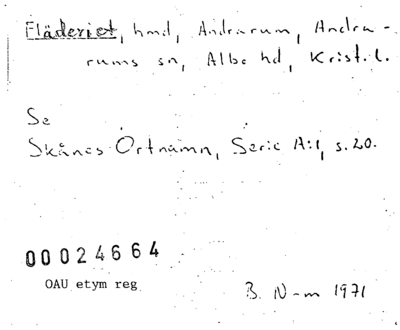 Fläderiet, hmd, Andrarum, Andra-
rums sn, Albo hd, Krist. l.
Se
Skånes Ortnamn, Serie A:1, s. 20.
00024664
OAU etym reg
B. N-m 1971